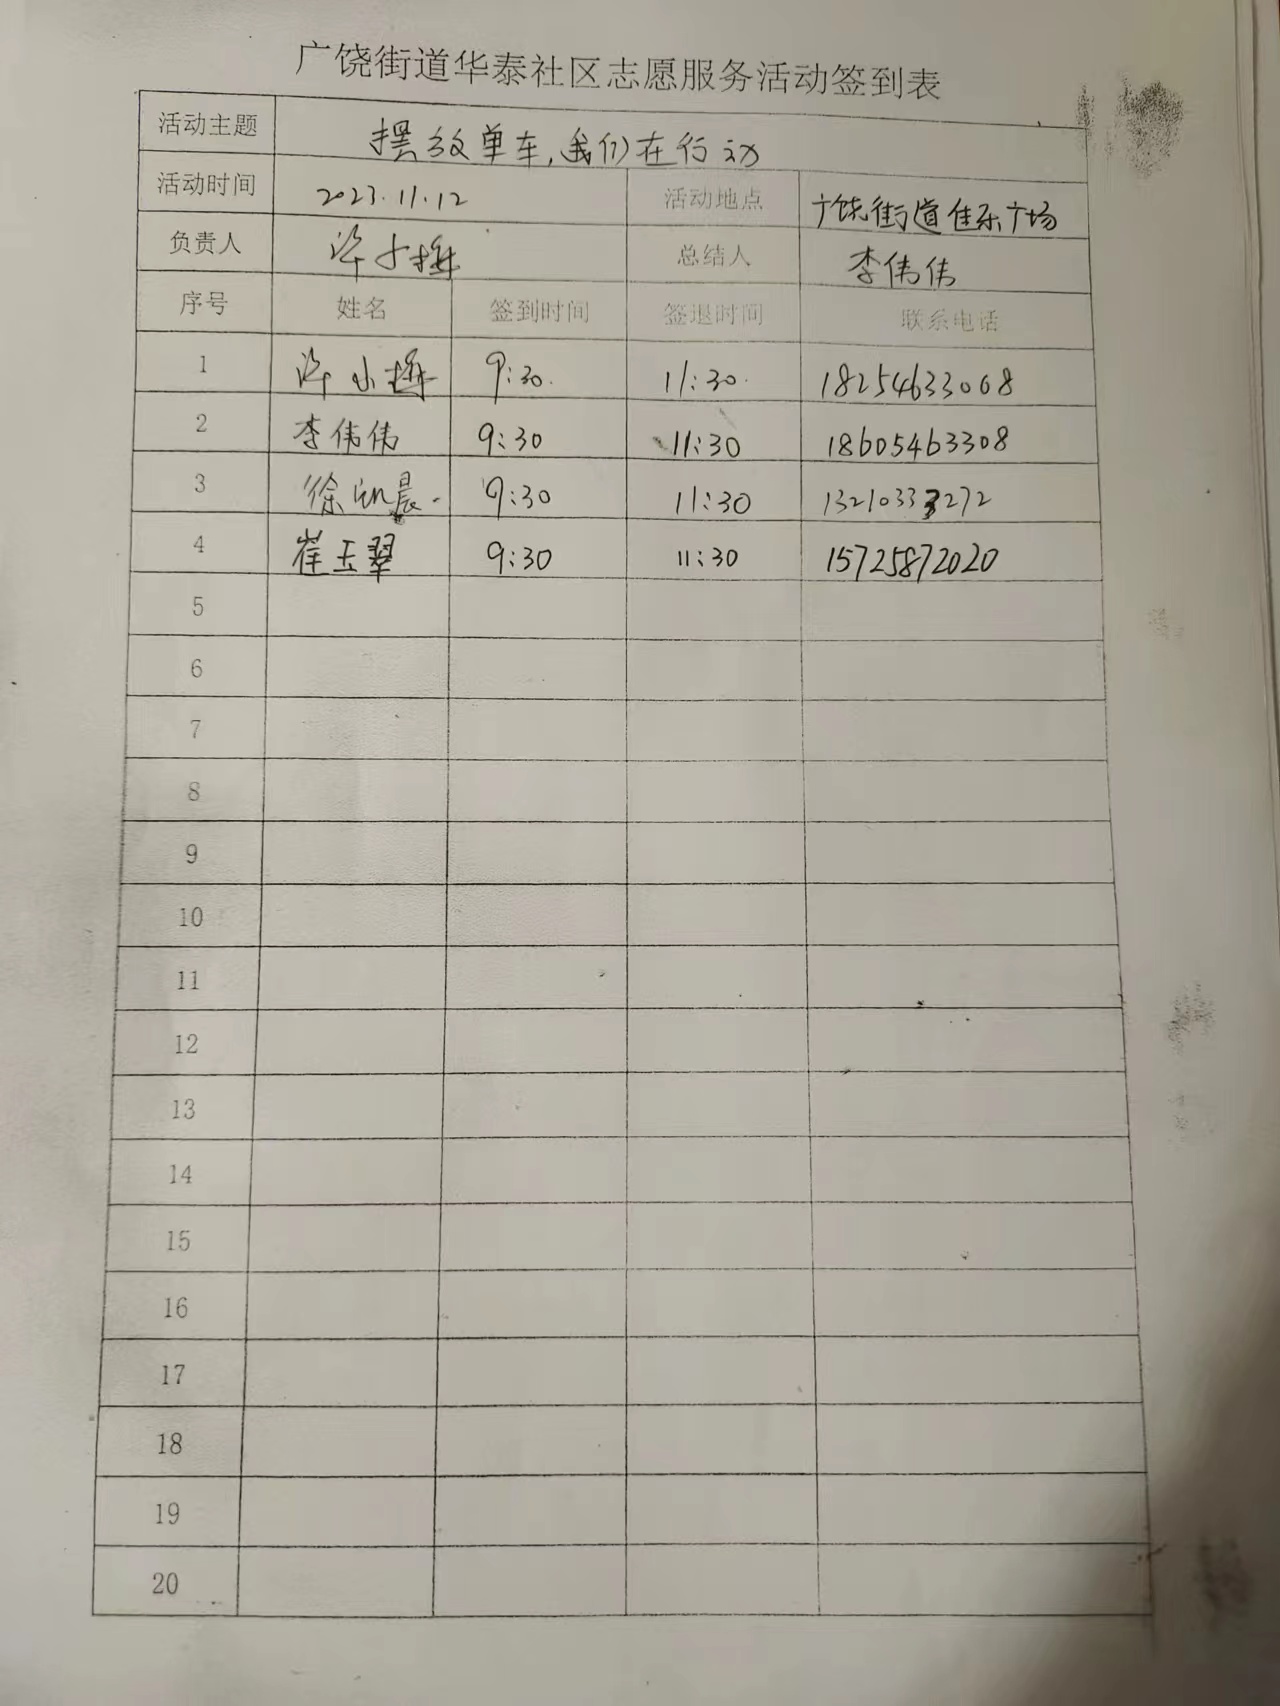 广饶街道华泰社区志愿服务活动签到表
活动主题 摆放单车,我们在行动
活动时间 2023.11.12 活动地点 广饶街道佳乐广场
负责人 许小梅 总结人 李伟伟
序号 姓名 签到时间 签退时间 联系电话
1 许小梅 9:30. 11:30. 18254633068
2 李伟伟 9:30 11:30 18605463308
3 徐 晨 9:30 11:30 13210333272
4 崔玉翠 9:30 11:30 15725872020
5
6
7
8
9
10
11
12
13
14
15
16
17
18
19
20